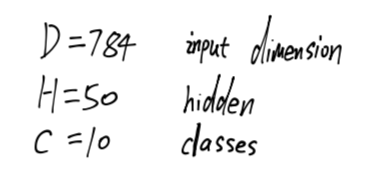 D=784 input dimension
H=50 hidden
C=10 classes